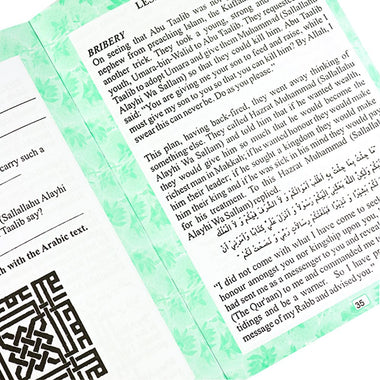 carry such a
(Sallallahu Alayhi
Taalib say?
with the Arabic text.
BRIBERY
On seeing that Abu Taalib was not
nephew from preaching Islam, the Kuffaar
another trick. They took a young, strong and
youth, Umara-bin-Walid to Abu Taalib. They requested
Taalib to adopt Umara and give them Muhammad (Sallallahu
Alayhi Wa Sallam) so that they could kill him. Abu Taalib
said: "You are giving me your son to feed and raise, while I
must give my son to you so that you can kill him? By Allah, I
swear this can never be. Do as you please."
This plan, having back-fired, they went away thinking of
something else. They called Hazrat Muhammad (Sallallahu
Alayhi Wa Sallam) and told him that if he wanted wealth
they would give him so much that he would become the
richest man in Makkah; if he wanted honour they would make
him their leader; if he sought a kingdom they would make
him king and if he was sick in his mind they would pay
for his treatment. To this Hazrat Muhammad (Sallallahu
Alayhi Wa Sallam) replied.
مَا جِئْتُ بِمَا جِئْتُكُمْ بِهِ أَطْلُبُ أَمْوَالَكُمْ وَلَا الشَّرَفَ فِيكُمْ وَلَا الْمُلْكَ
"I did not come with what I have come to seek
honour amongst you nor kingship upon you,
had sent me as a messenger to you and revealed
(The Qur'aan) to me and commanded me to
tidings and be a warner. So I have
message of my Rabb and advised you."
35